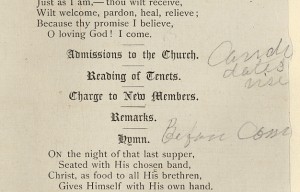 Just as I am,—thou wilt receive,
Wilt welcome, pardon, heal, relieve;
Because thy promise I believe,
O loving God! I come.
Admissions to the Church.
Reading of Tenets.
Charge to New Members.
Remarks.
Hymn.
ON the night of that last supper,
Seated with His chosen band,
Christ, as food to all His brethren,
Gives Himself with His own hand.